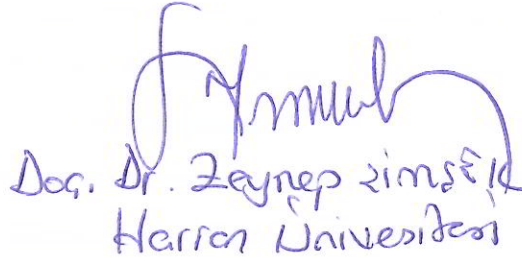 Doç. Dr. Zeynep Şimşek
Harran Üniversitesi